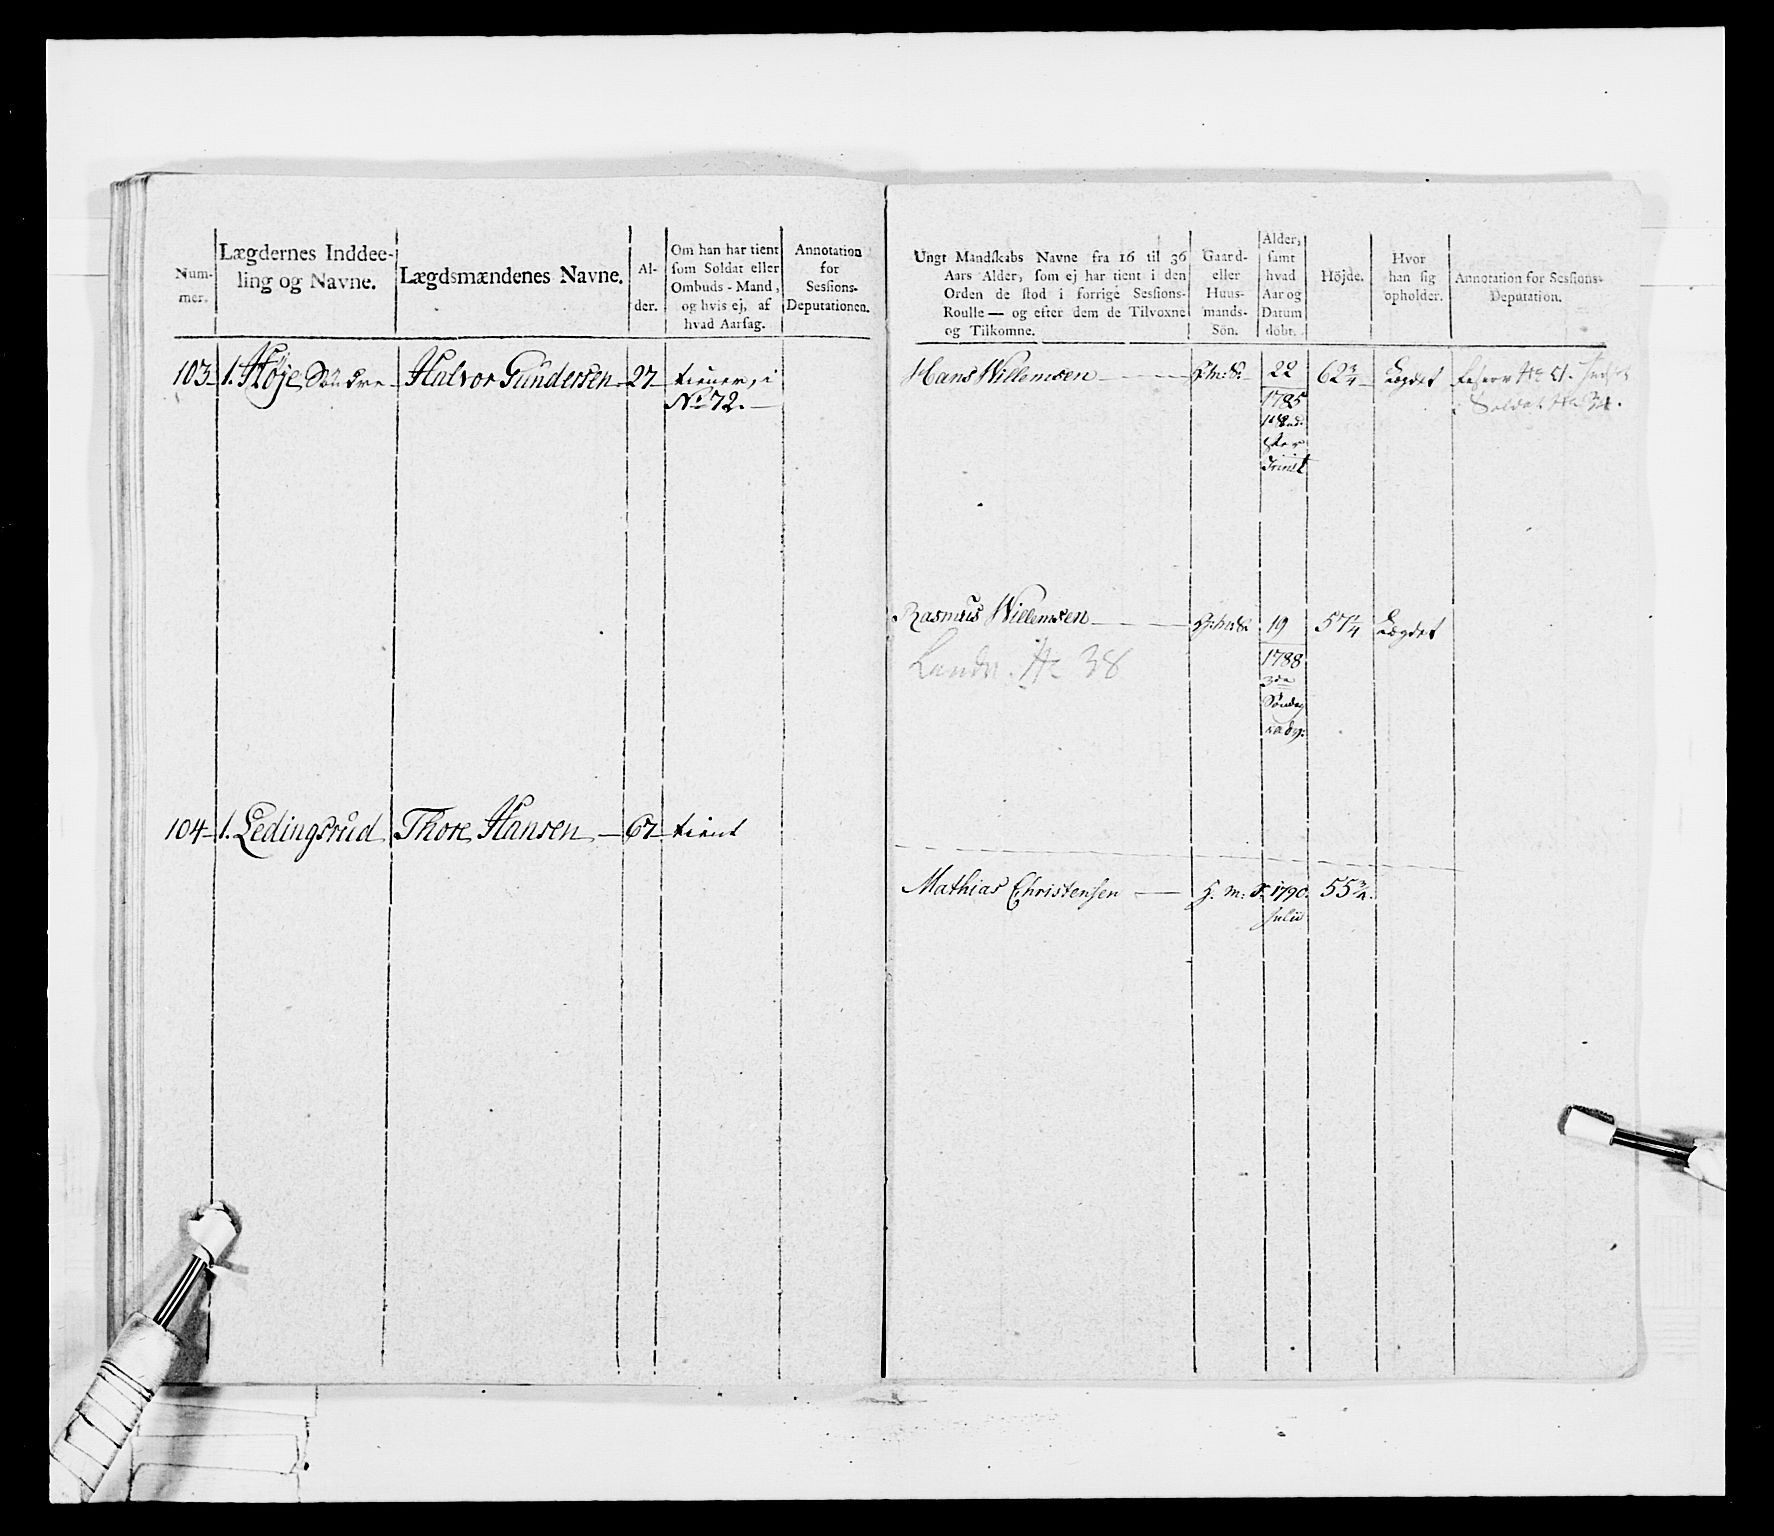 Num-
mer.
Lægdernes Inddee-
ling og Navne.
Lægdsmændenes Navne.
Al-
der.
Om han har tient
som Soldat eller
Ombuds-Mand,
og hvis ej, af
hvad Aarsag.
Annotation
for
Sessions-
Deputationen.
103 1. Høje Søndre Halvor Gundersen 27 tiener, i
No 72.
104 1. Ledingsrud Thore Hansen 67 tient
Ungt Mandskabs Navne fra 16 til 36
Aars Alder, som ej har tient i den
Orden de stod i forrige Sessions-
Roulle — og efter dem de Tilvoxne
og Tilkomne.
Gaard-
eller
Huus-
mands-
Sön.
Alder,
samt
hvad
Aar og
Datum
döbt.
Höjde.
Hvor
han sig
opholder.
Annotation for Sessions-
Deputation.
Hans Willemsen 22 62 3/4 Lægdet
Soldat
1785
Trinit
Rasmus Willemsen 19 57 1/4 Lægdet
Landv. No 38
1788
3de
Søndag
i adv:
Mathias Christensen H. m: S. 1790. 55 3/4.
Julii